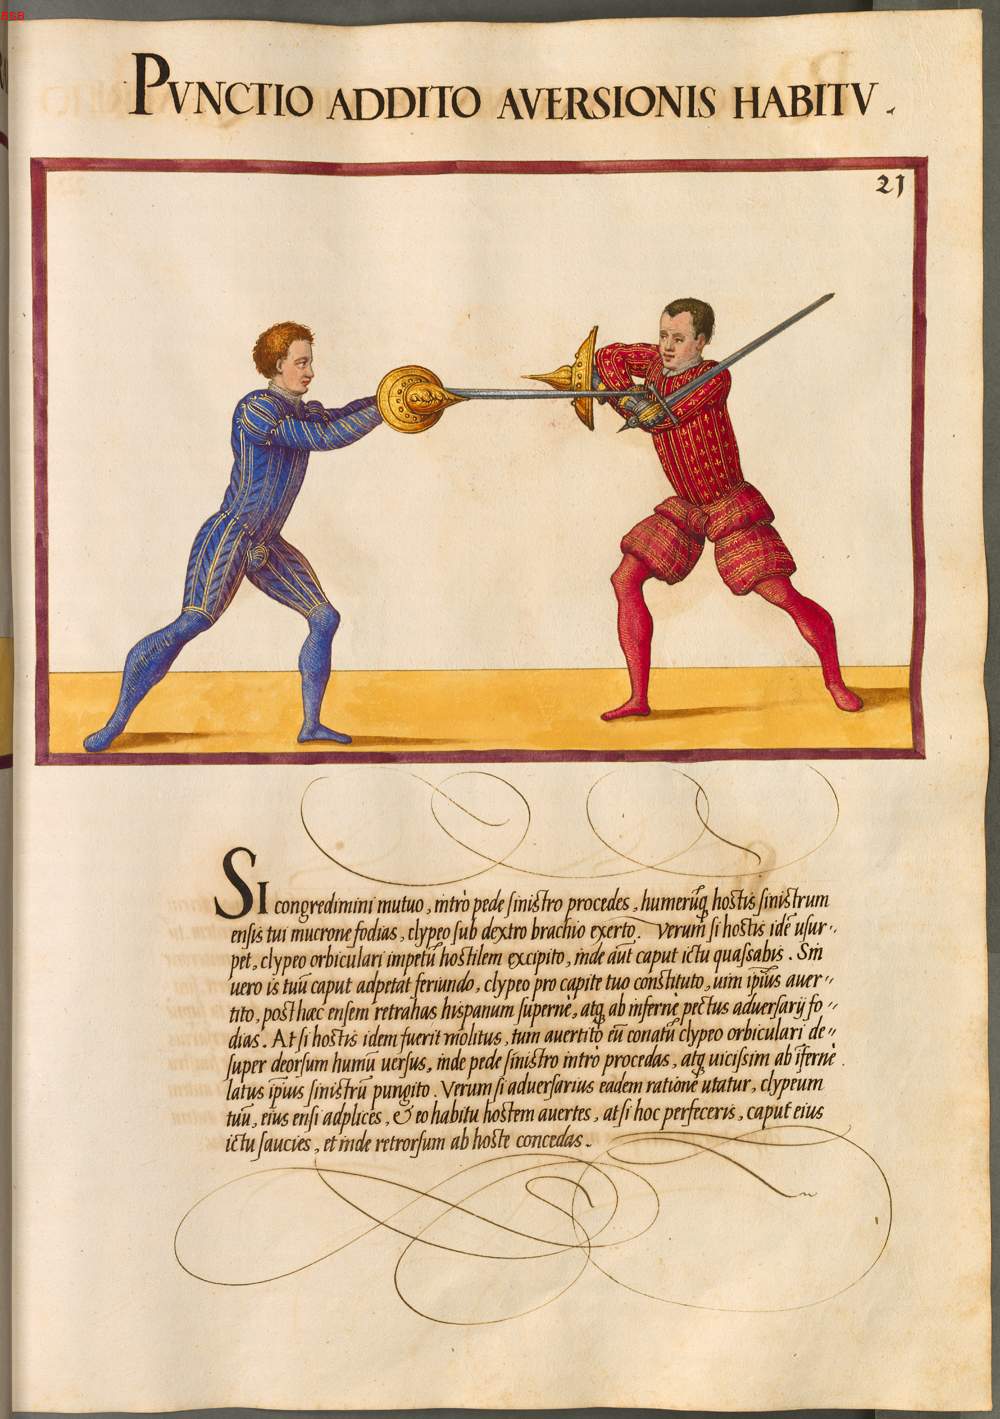 BSB
PVNCTIO ADDITO AVERSIONIS HABITV.
21
SI congredimini mutuo, intrò pede sinistro procedes, humerūq hostis sinistrum
ensis tui mucrone fodias, clypeo sub dextro brachio exerto. Verum si hostis idē usur〃
pet, clypeo orbiculari impetū hostilem excipito, inde aūt caput ictu quassabis. Sin
uero is tuū caput adpetat feriundo, clypeo pro capite tuo constituto, uim ip̄ius auer〃
tito, posthac ensem retrahas hispanum supernè, atq̨ ab infernè pectus aduersarij fo〃
dias. At si hostis idem fuerit molitus, tum auertito eū conatū clypeo orbiculari de〃
super deorsum humū uersus, inde pede sinistro intrò procedas, atq̨ uicissim ab īfernè
latus ip̄ius sinistrū pungito. Verum si aduersarius eādem rationē utatur, clypeum
tuū, eius ensi adplices, & eo habitu hostem auertes, at si hoc perfeceris, caput eius
ictu saucies, et inde retrorsum ab hoste concedas.